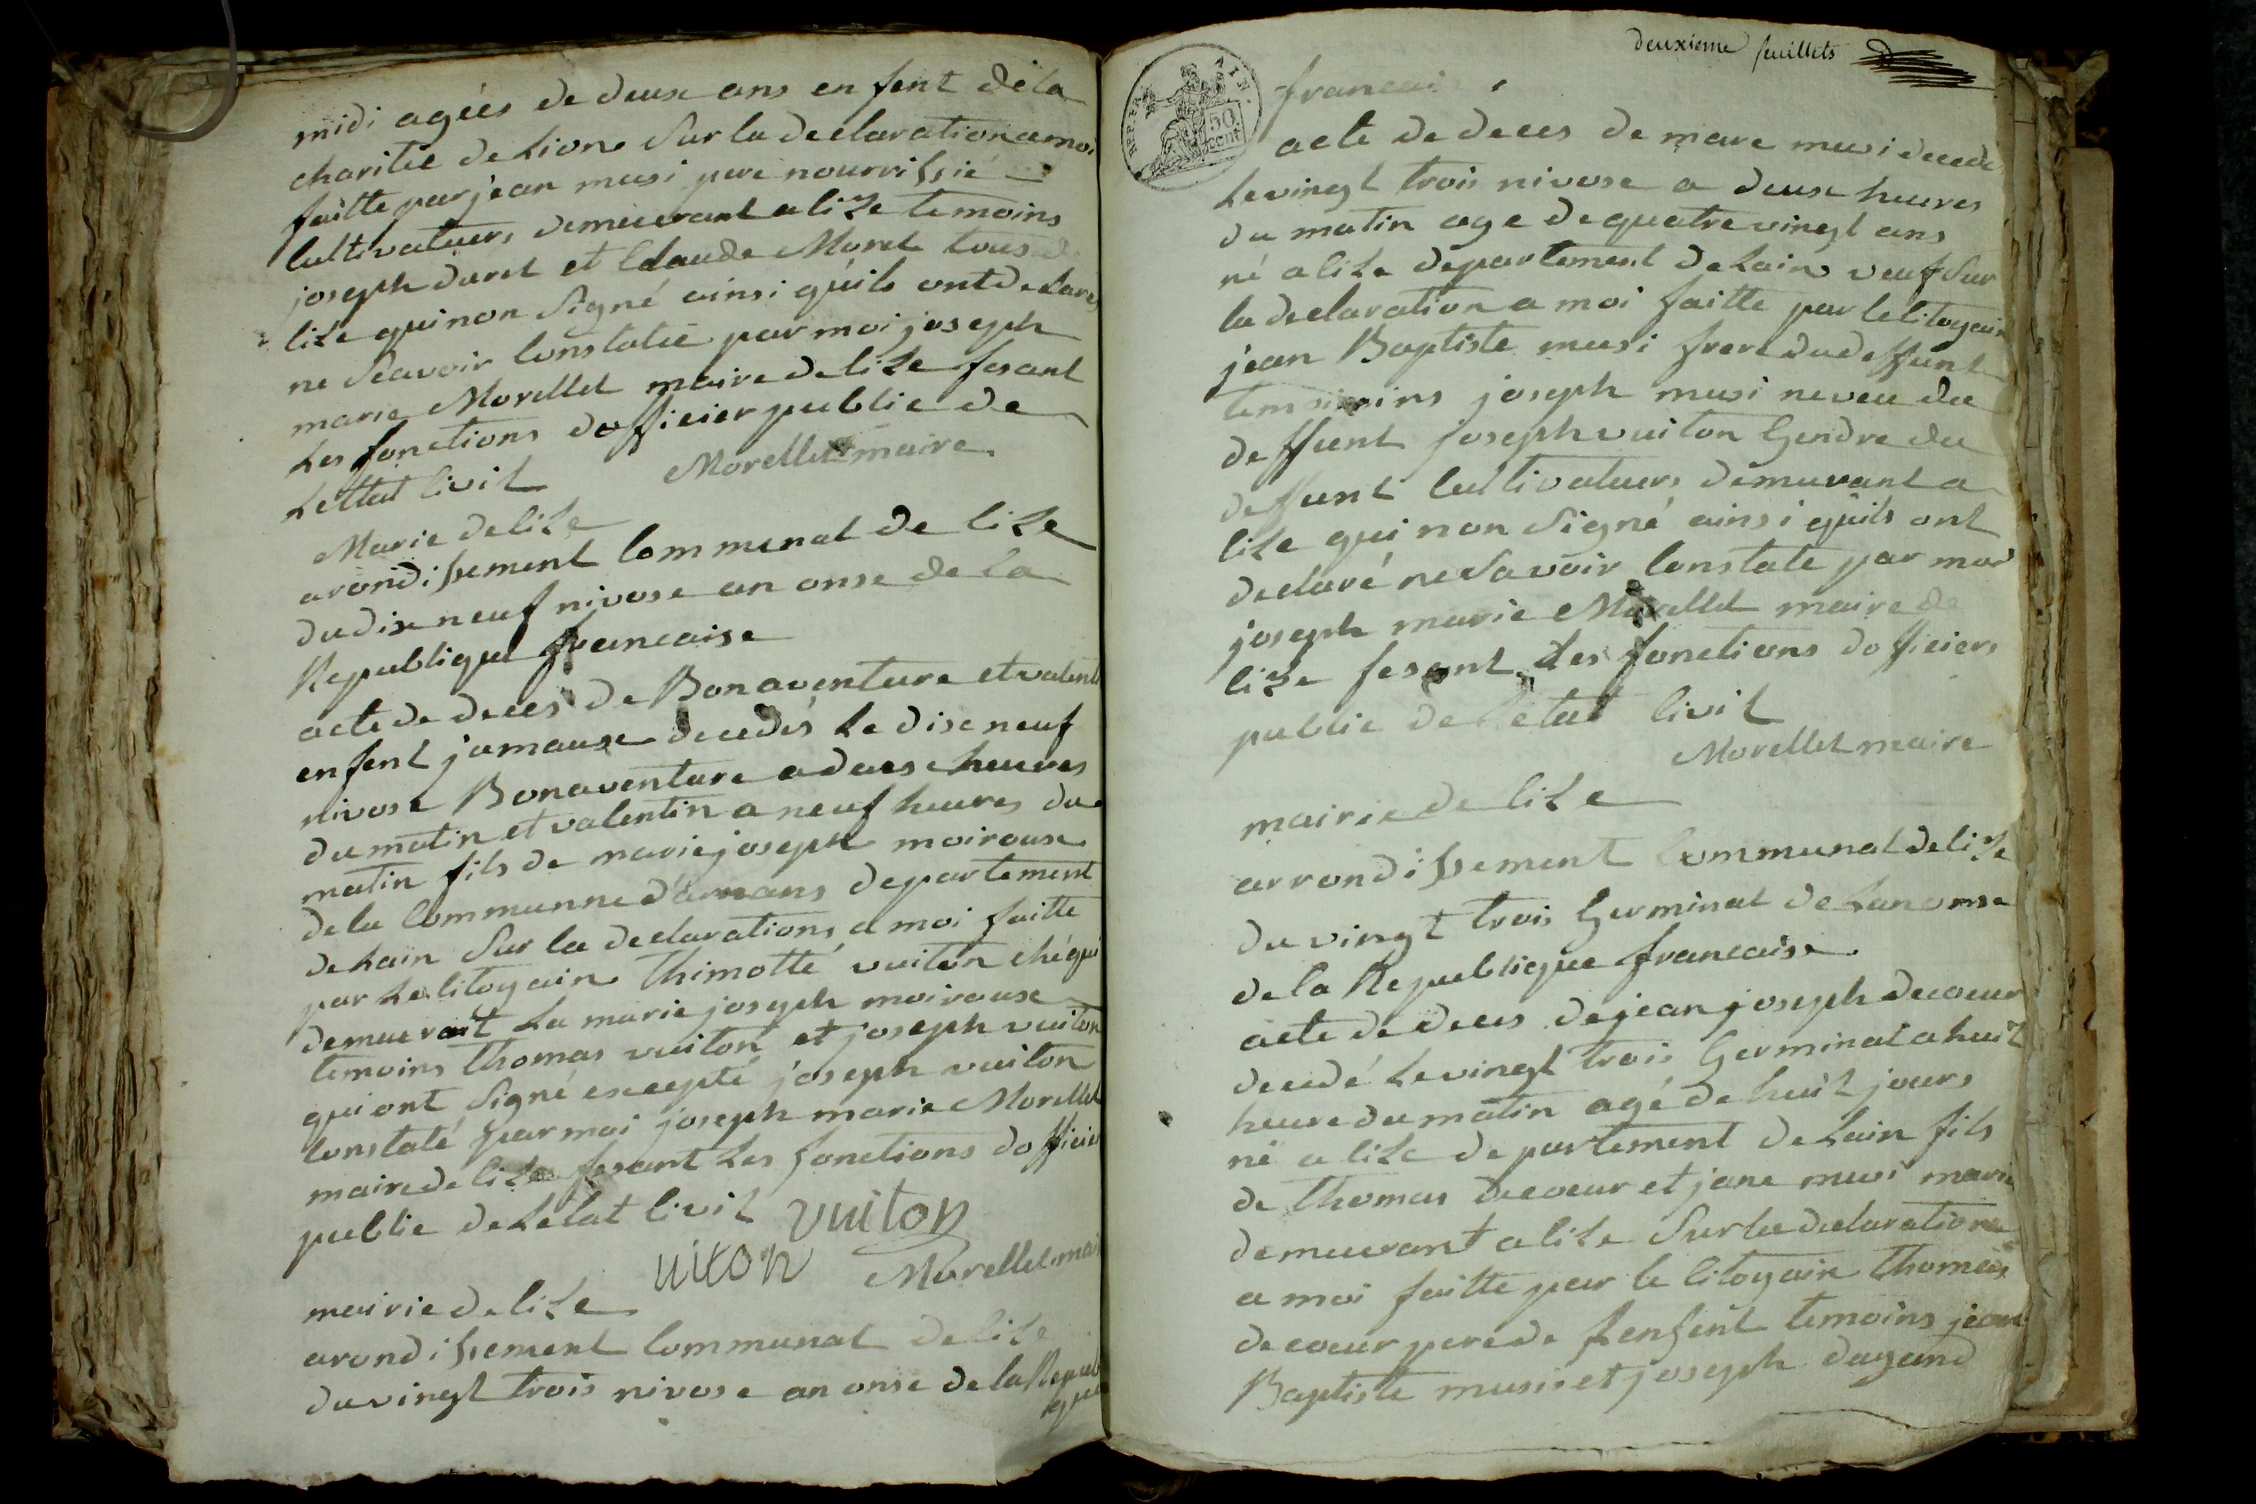 midi agées de deux ans enfent dela
charitée de Lion Sur la declaration a moi
faitte par jean musi pere nourrissié
Cultivateurs demeurant a lize temoins
joseph duret et Claude Moret tous d
lize qui non Signé ainsi quils ont declarez
ne Scavoir Constatée par moi joseph
marie Morellet maire de lize fesant
Les fonctions dofficier public de
Lettat Civil Morellet maire
Marie de lize
arondissement Communal de lize
du dix neuf nivose an onse de la
Republique francaise
acte de deces de Bonaventure et valent
enfent jamaux decedés Le dix neuf
nivose Bonaventure a deux heures
du matin et valentin a neuf heures du
matin fils de marie joseph moiroux
de la Communne departement
de Lain Sur la declarations a moi faitte
par Le Citoyain Thimotté vuiton ché qui
demeurait La marie joseph moiroux
temoins Thomas vuiton et joseph vuiton
qui ont Signé excepté joseph vuiton
Constaté par moi joseph marie Morellet
maire de lize fesant Les fonctions dofficier
public de Letat Civil vuiton
uiton Morellet mai
mairie de lize
arondissement Communal de lize
du vingt trois nivose an onse de la Repub
lique
deuxieme feuillets
REP. FRA
50
CENT
francai
acte de deces de marc musi decede
Le vingt trois nivose a deux heures
du matin age de quatre vingt ans
né a lize departement de Lain veuf Sur
la declaration a moi faitte par le Citoyain
jean Baptiste musi frere du deffunt
temoins joseph musi neveu du
deffunt joseph vuiton Gendre du
deffunt Cultivateurs demurant a
lize qui non Signé ainsi quils ont
declaré ne Savoir Constate par moi
joseph marie Morellet maire de
lize fesant Les fonctions dofficiers
public de Letat Civil
Morellet maire
mairie de lize
arrondissement Communal de lize
du vingt trois Germinal de Lan onse
de la Republique francaise
acte de deces de jean joseph decoeur
decedé Le vingt trois Germinal a huit
heure du matin agé de huit jours
né a lize departement de Lain fils
de Thomas decoeur et jane musi marie
demeurant a lize Sur la declaration
a moi faitte par le Citoyain Thomas
decoeur pere de Lenfent temoins jean
Baptiste musi et joseph dagand